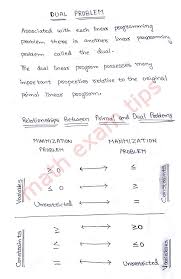 DUAL PROBLEM
Associated with each linear programming
problem there is another linear programming
problem called the dual.
The dual linear program possesses many
important properties relative to the original
primal linear program.
Relationships Between Primal and Dual Problems
MINIMIZATION PROBLEM
MAXIMIZATION PROBLEM
Variables
≥ 0 ⟷ ≤
≤ 0 ⟷ ≥
Unrestricted ⟷ =
Constraints
≥ ⟷ ≥ 0
≤ ⟷ ≤ 0
= ⟷ Unrestricted
Variables
Constraints
math exam tips